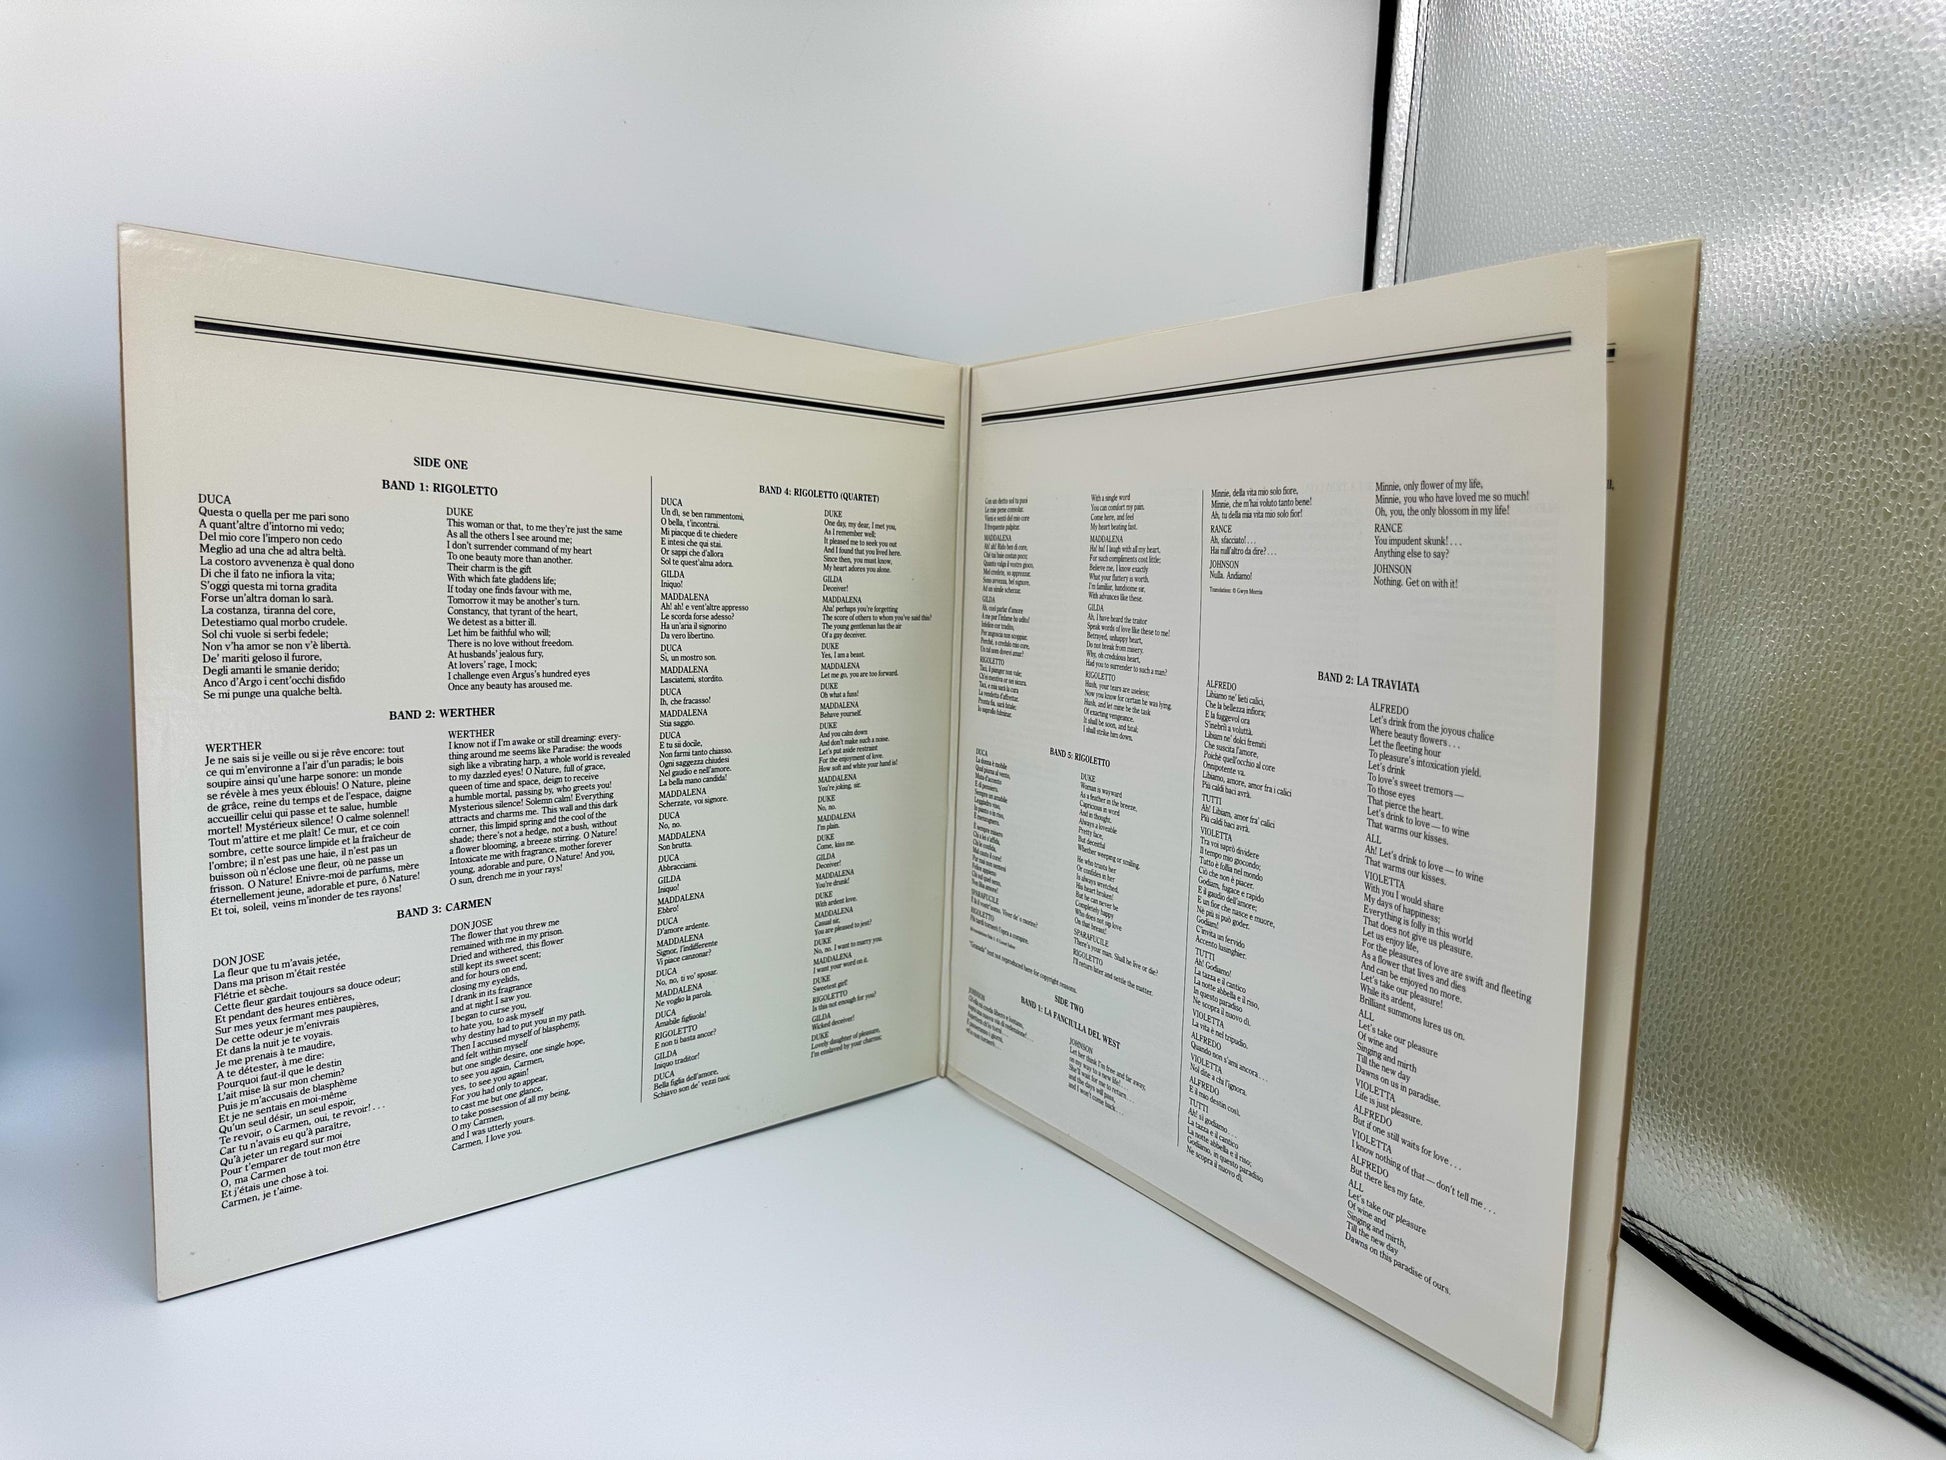 SIDE ONE
BAND 1: RIGOLETTO
DUCA
Questa o quella per me pari sono
A quant'altre d'intorno mi vedo;
Del mio core l'impero non cedo
Meglio ad una che ad altra beltà.
La costoro avvenenza è qual dono
Di che il fato ne infiora la vita;
S'oggi questa mi torna gradita
Forse un'altra doman lo sarà.
La costanza, tiranna del core,
Detestiamo qual morbo crudele.
Sol chi vuole si serbi fedele;
Non v'ha amor se non v'è libertà.
De' mariti geloso il furore,
Degli amanti le smanie derido;
Anco d'Argo i cent'occhi disfido
Se mi punge una qualche beltà.
DUKE
This woman or that, to me they're just the same
As all the others I see around me;
I don't surrender command of my heart
To one beauty more than another.
Their charm is the gift
With which fate gladdens life;
If today one finds favour with me,
Tomorrow it may be another's turn.
Constancy, that tyrant of the heart,
We detest as a bitter ill.
Let him be faithful who will;
There is no love without freedom.
At husbands' jealous fury,
At lovers' rage, I mock;
I challenge even Argus's hundred eyes
Once any beauty has aroused me.
BAND 2: WERTHER
WERTHER
Je ne sais si je veille ou si je rêve encore: tout
ce qui m'environne a l'air d'un paradis; le bois
soupire ainsi qu'une harpe sonore: un monde
se révèle à mes yeux éblouis! O Nature, pleine
de grâce, reine du temps et de l'espace, daigne
accueillir celui qui passe et te salue, humble
mortel! Mystérieux silence! O calme solennel!
Tout m'attire et me plaît! Ce mur, et ce coin
sombre, cette source limpide et la fraîcheur de
l'ombre; il n'est pas une haie, il n'est pas un
buisson où n'éclose une fleur, où ne passe un
frisson. O Nature! Enivre-moi de parfums, mère
éternellement jeune, adorable et pure, ô Nature!
Et toi, soleil, veins m'inonder de tes rayons!
WERTHER
I know not if I'm awake or still dreaming: every-
thing around me seems like Paradise: the woods
sigh like a vibrating harp, a whole world is revealed
to my dazzled eyes! O Nature, full of grace,
queen of time and space, deign to receive
a humble mortal, passing by, who greets you!
Mysterious silence! Solemn calm! Everything
attracts and charms me. This wall and this dark
corner, this limpid spring and the cool of the
shade; there's not a hedge, not a bush, without
a flower blooming, a breeze stirring. O Nature!
Intoxicate me with fragrance, mother forever
young, adorable and pure, O Nature! And you,
O sun, drench me in your rays!
BAND 3: CARMEN
DON JOSE
La fleur que tu m'avais jetée,
Dans ma prison m'était restée
Flétrie et sèche.
Cette fleur gardait toujours sa douce odeur;
Et pendant des heures entières,
Sur mes yeux fermant mes paupières,
De cette odeur je m'enivrais
Et dans la nuit je te voyais.
Je me prenais à te maudire,
A te détester, à me dire:
Pourquoi faut-il que le destin
L'ait mise là sur mon chemin?
Puis je m'accusais de blasphème
Et je ne sentais en moi-même
Qu'un seul désir, un seul espoir,
Te revoir, o Carmen, oui, te revoir! . . .
Car tu n'avais eu qu'à paraître,
Qu'à jeter un regard sur moi
Pour t'emparer de tout mon être
O, ma Carmen
Et j'étais une chose à toi.
Carmen, je t'aime.
DON JOSE
The flower that you threw me
remained with me in my prison.
Dried and withered, this flower
still kept its sweet scent;
and for hours on end,
closing my eyelids,
I drank in its fragrance
and at night I saw you.
I began to curse you,
to hate you, to ask myself
why destiny had to put you in my path.
Then I accused myself of blasphemy,
and felt within myself
but one single desire, one single hope,
to see you again, Carmen,
yes, to see you again!
For you had only to appear,
to cast me but one glance,
to take possession of all my being,
O my Carmen,
and I was utterly yours.
Carmen, I love you.
BAND 4: RIGOLETTO (QUARTET)
DUCA
Un dì, se ben rammentomi,
O bella, t'incontrai.
Mi piacque di te chiedere
E intesi che qui stai.
Or sappi che d'allora
Sol te quest'alma adora.
GILDA
Iniquo!
MADDALENA
Ah! ah! e vent'altre appresso
Le scorda forse adesso?
Ha un'aria il signorino
Da vero libertino.
DUCA
Sì, un mostro son.
MADDALENA
Lasciatemi, stordito.
DUCA
Ih, che fracasso!
MADDALENA
Stia saggio.
DUCA
E tu sii docile,
Non farmi tanto chiasso.
Ogni saggezza chiudesi
Nel gaudio e nell'amore.
La bella mano candida!
MADDALENA
Scherzate, voi signore.
DUCA
No, no.
MADDALENA
Son brutta.
DUCA
Abbracciami.
GILDA
Iniquo!
MADDALENA
Ebbro!
DUCA
D'amore ardente.
MADDALENA
Signor, l'indifferente
Vi piace canzonar?
DUCA
No, no, ti vo' sposar.
MADDALENA
Ne voglio la parola.
DUCA
Amabile figliuola!
RIGOLETTO
E non ti basta ancor?
GILDA
Iniquo traditor!
DUCA
Bella figlia dell'amore,
Schiavo son de' vezzi tuoi;
DUKE
One day, my dear, I met you,
As I remember well;
It pleased me to seek you out
And I found that you lived here.
Since then, you must know,
My heart adores you alone.
GILDA
Deceiver!
MADDALENA
Aha! perhaps you're forgetting
The score of others to whom you've said this?
The young gentleman has the air
Of a gay deceiver.
DUKE
Yes, I am a beast.
MADDALENA
Let me go, you are too forward.
DUKE
Oh what a fuss!
MADDALENA
Behave yourself.
DUKE
And you calm down
And don't make such a noise.
Let's put aside restraint
For the enjoyment of love.
How soft and white your hand is!
MADDALENA
You're joking, sir.
DUKE
No, no.
MADDALENA
I'm plain.
DUKE
Come, kiss me.
GILDA
Deceiver!
MADDALENA
You're drunk!
DUKE
With ardent love.
MADDALENA
Casual sir,
You are pleased to jest?
DUKE
No, no, I want to marry you.
MADDALENA
I want your word on it.
DUKE
Sweetest girl!
RIGOLETTO
Is this not enough for you?
GILDA
Wicked deceiver!
DUKE
Lovely daughter of pleasure,
I'm enslaved by your charms;
Con un detto sol tu puoi
Le mie pene consolar.
Vieni e senti del mio core
Il frequente palpitar.
MADDALENA
Ah! ah! Rido ben di core,
Chè tai baie costan poco;
Quanto valga il vostro gioco,
Mel credete, so apprezzar.
Sono avvezza, bel signore,
Ad un simile scherzar.
GILDA
Ah, così parlar d'amore
A me pur l'infame ho udito!
Infelice cor tradito,
Per angoscia non scoppiar.
Perchè, o credulo mio core,
Un tal uom dovevi amar?
RIGOLETTO
Taci, il pianger non vale;
Ch'ei mentiva or sei sicura.
Taci, e mia sarà la cura
La vendetta d'affrettar.
Pronta fia, sarà fatale;
Io saprollo fulminar.
With a single word
You can comfort my pain.
Come here, and feel
My heart beating fast.
MADDALENA
Ha! ha! I laugh with all my heart,
For such compliments cost little;
Believe me, I know exactly
What your flattery is worth.
I'm familiar, handsome sir,
With advances like these.
GILDA
Ah, I have heard the traitor
Speak words of love like these to me!
Betrayed, unhappy heart,
Do not break from misery.
Why, oh credulous heart,
Had you to surrender to such a man?
RIGOLETTO
Hush, your tears are useless;
Now you know for certain he was lying.
Hush, and let mine be the task
Of exacting vengeance.
It shall be soon, and fatal;
I shall strike him down.
BAND 5: RIGOLETTO
DUCA
La donna è mobile
Qual piuma al vento,
Muta d'accento
E di pensiero.
Sempre un amabile
Leggiadro viso,
In pianto o in riso,
È menzognero.
È sempre misero
Chi a lei s'affida,
Chi le confida,
Mal cauto il core!
Pur mai non sentesi
Felice appieno
Chi sul quel seno,
Non liba amore!
SPARAFUCILE
È là il vostr'uomo. Viver de' o morire?
RIGOLETTO
Più tardi tornerò l'opra a compire.
DUKE
Woman is wayward
As a feather in the breeze,
Capricious in word
And in thought.
Always a loveable
Pretty face,
But deceitful
Whether weeping or smiling.
He who trusts her
Or confides in her
Is always wretched,
His heart broken!
But he can never be
Completely happy
Who does not sip love
On that breast!
SPARAFUCILE
There's your man. Shall he live or die?
RIGOLETTO
I'll return later and settle the matter.
"Granada" text not reproduced here for copyright reasons.
SIDE TWO
BAND 1: LA FANCIULLA DEL WEST
JOHNSON
Ch'ella mi creda libero e lontano,
JOHNSON
Let her think I'm free and far away,
on my way to a new life! . . .
She'll wait for me to return . . .
and the days will pass,
and I won't come back . . .
Minnie, della vita mio solo fiore,
Minnie, che m'hai voluto tanto bene!
Ah, tu della mia vita mio solo fior!
RANCE
Ah, sfacciato! . . .
Hai null'altro da dire? . . .
JOHNSON
Nulla. Andiamo!
Translation: © Gwyn Morris
Minnie, only flower of my life,
Minnie, you who have loved me so much!
Oh, you, the only blossom in my life!
RANCE
You impudent skunk! . . .
Anything else to say?
JOHNSON
Nothing. Get on with it!
BAND 2: LA TRAVIATA
ALFREDO
Libiamo ne' lieti calici,
Che la bellezza infiora;
E la fuggevol ora
S'inebrii a voluttà.
Libiam ne' dolci fremiti
Che suscita l'amore,
Poichè quell'occhio al core
Onnipotente va.
Libiamo, amore, amor fra i calici
Più caldi baci avrà.
TUTTI
Ah! Libiam, amor fra' calici
Più caldi baci avrà.
VIOLETTA
Tra voi saprò dividere
Il tempo mio giocondo;
Tutto è follia nel mondo
Ciò che non è piacer.
Godiam, fugace e rapido
È il gaudio dell'amore;
È un fior che nasce e muore,
Nè più si può goder.
Godiam!
C'invita un fervido
Accento lusinghier.
TUTTI
Ah! Godiamo!
La tazza e il cantico
La notte abbella e il riso,
In questo paradiso
Ne scopra il nuovo dì.
VIOLETTA
La vita è nel tripudio.
ALFREDO
Quando non s'ami ancora . . .
VIOLETTA
Nol dite a chi l'ignora.
ALFREDO
È il mio destin così.
TUTTI
Ah! sì godiamo . . .
La tazza e il cantico
La notte abbella e il riso;
Godiamo, in questo paradiso
Ne scopra il nuovo dì.
ALFREDO
Let's drink from the joyous chalice
Where beauty flowers . . .
Let the fleeting hour
To pleasure's intoxication yield.
Let's drink
To love's sweet tremors —
To those eyes
That pierce the heart.
Let's drink to love — to wine
That warms our kisses.
ALL
Ah! Let's drink to love — to wine
That warms our kisses.
VIOLETTA
With you I would share
My days of happiness;
Everything is folly in this world
That does not give us pleasure.
Let us enjoy life,
For the pleasures of love are swift and fleeting
As a flower that lives and dies
And can be enjoyed no more.
Let's take our pleasure!
While its ardent,
Brilliant summons lures us on.
ALL
Let's take our pleasure
Of wine and
Singing and mirth
Till the new day
Dawns on us in paradise.
VIOLETTA
Life is just pleasure.
ALFREDO
But if one still waits for love . . .
VIOLETTA
I know nothing of that — don't tell me . . .
ALFREDO
But there lies my fate.
ALL
Let's take our pleasure
Of wine and
Singing and mirth,
Till the new day
Dawns on this paradise of ours.